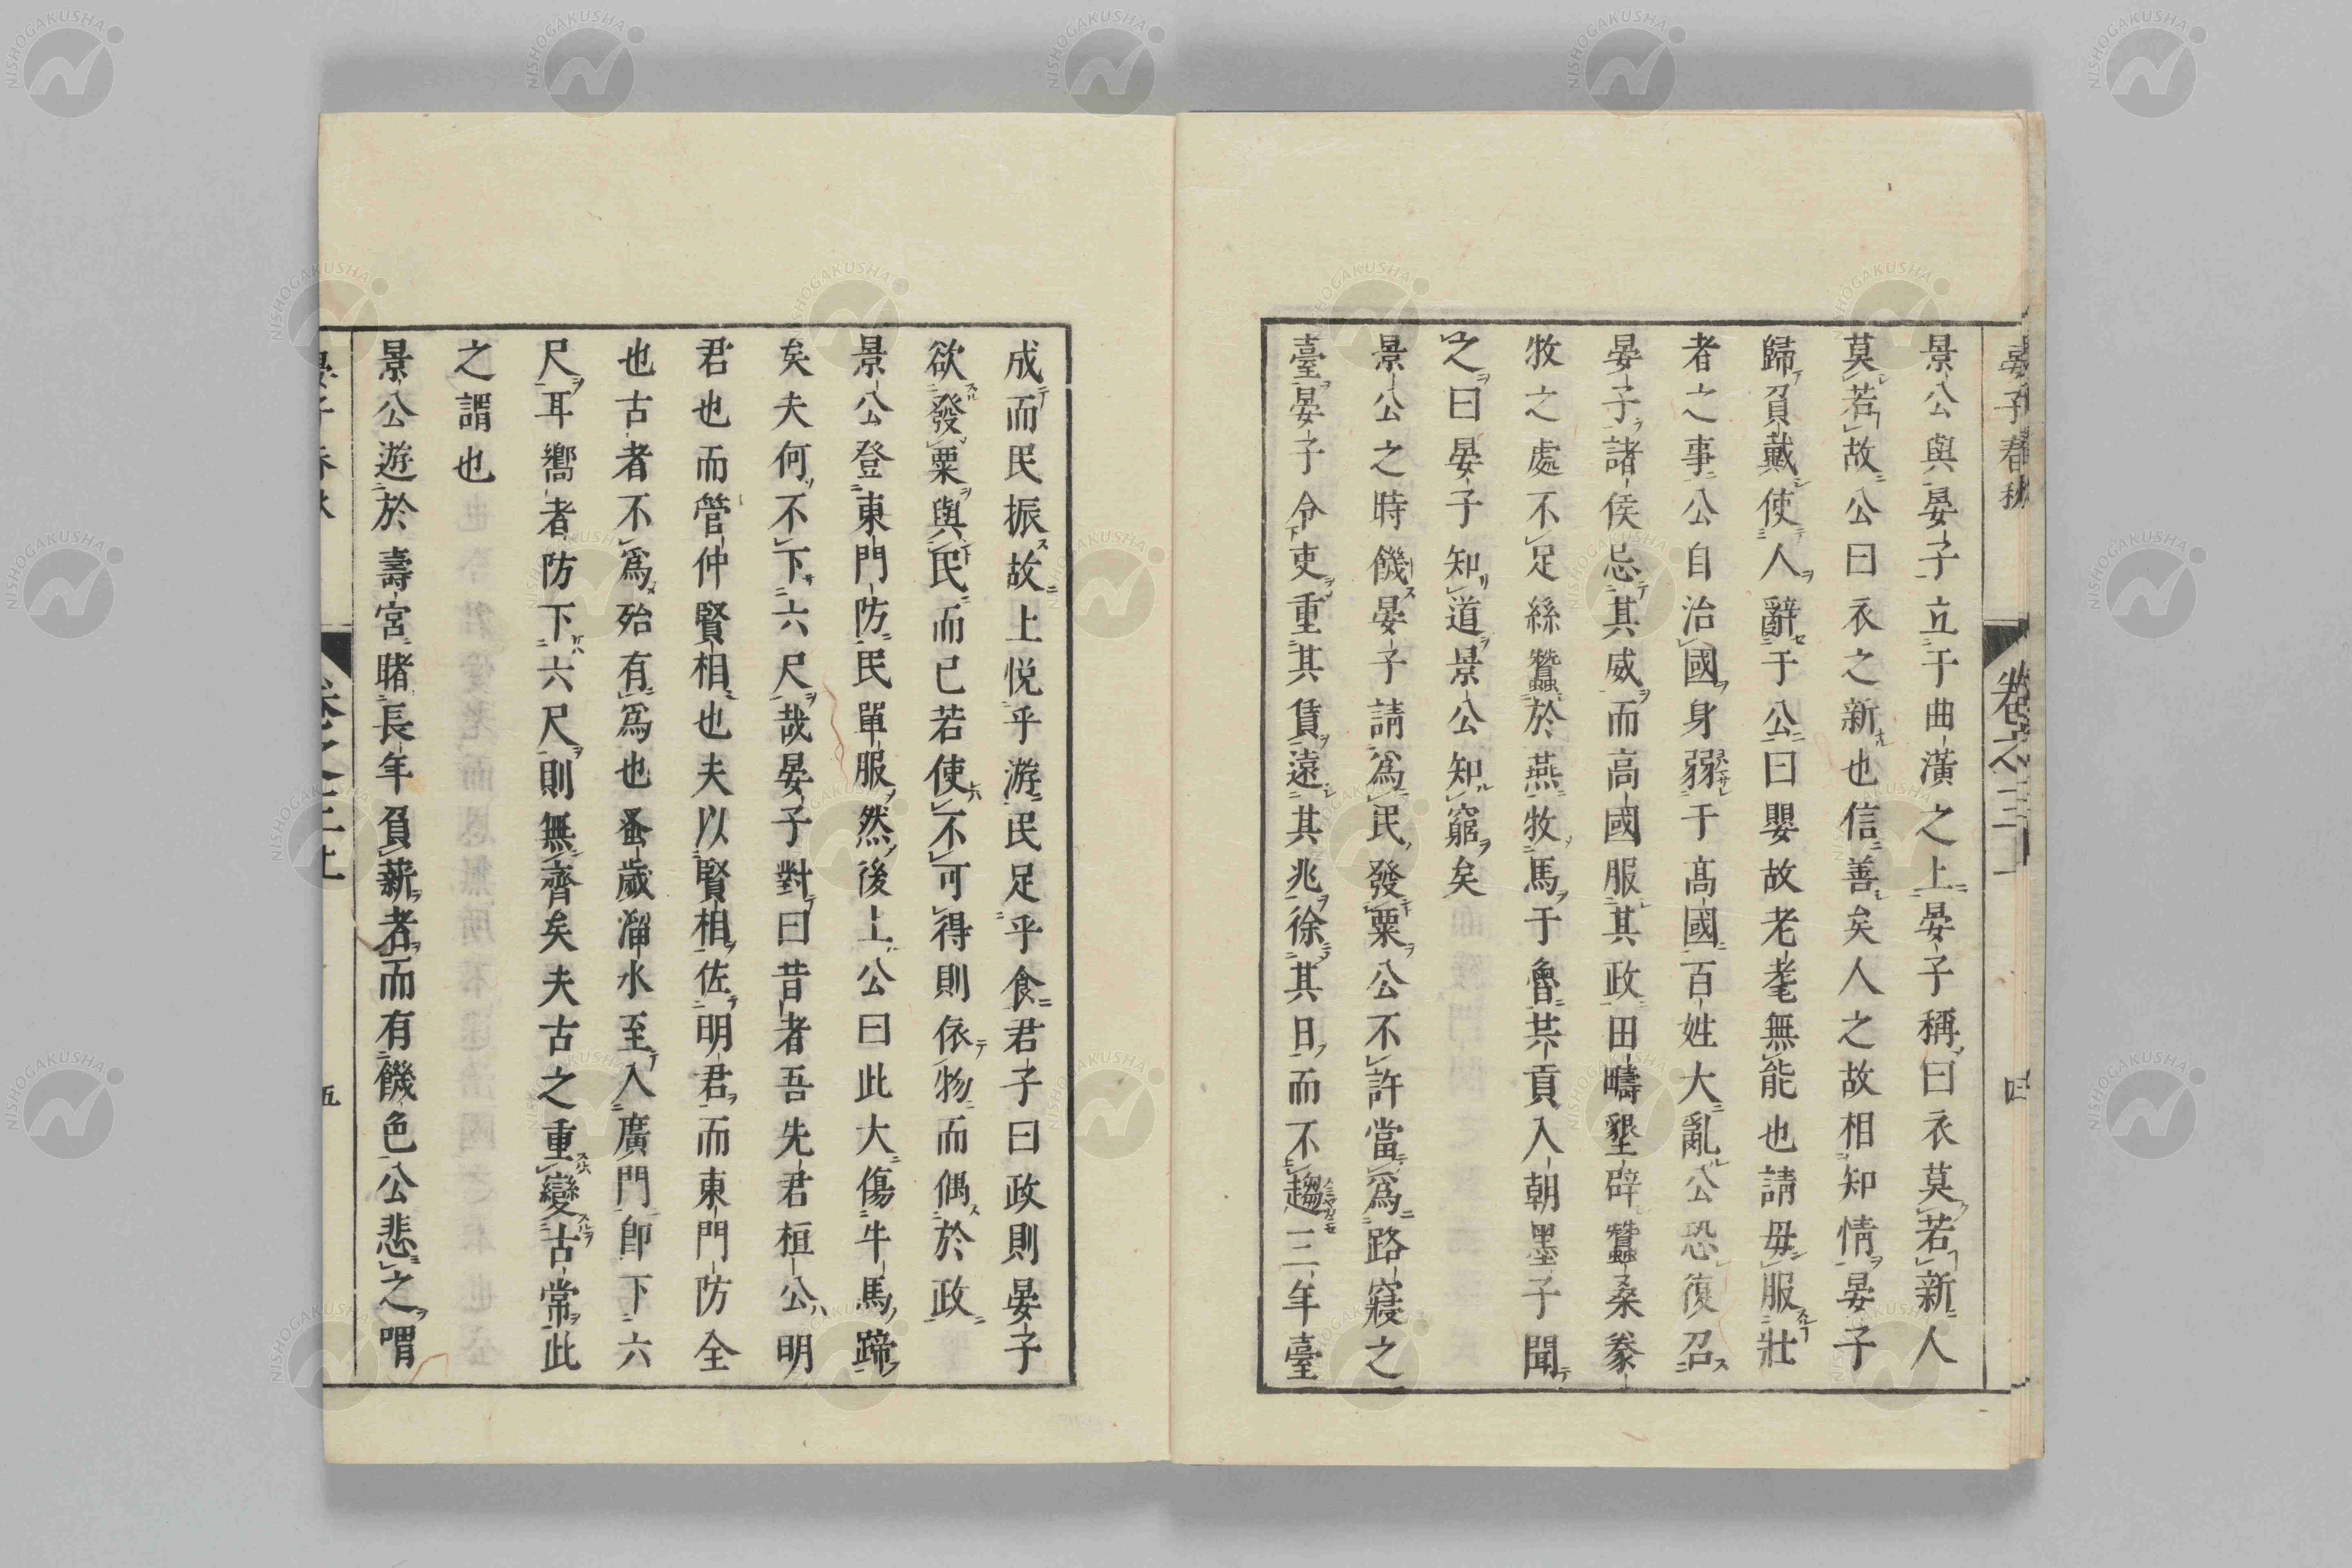 晏子春秋 卷之三 四
景公與晏子立于曲潢之上晏子稱曰衣莫若新人
莫若故公曰衣之新也信善矣人之故相知情晏子
歸負戴使人辭于公曰嬰故老耄無能也請毋服壯
者之事公自治國身弱于高國百姓大亂公恐復召
晏子諸侯忌其威而高國服其政田疇墾辟蠶桑豢
牧之處不足絲蠶於燕牧馬于魯共貢入朝墨子聞
之曰晏子知道景公知窮矣
景公之時饑晏子請爲民發粟公不許當爲路寢之
臺晏子令吏重其賃遠其兆徐其日而不趨三年臺
成而民振故上悦乎游民足乎食君子曰政則晏子
欲發粟與民而已若使不可得則依物而偶於政
景公登東門防民單服然後上公曰此大傷牛馬蹄
矣夫何不下六尺哉晏子對曰昔者吾先君桓公明
君也而管仲賢相也夫以賢相佐明君而東門防全
也古者不爲殆有爲也蚤歲溜水至入廣門卽下六
尺耳嚮者防下六尺則無齊矣夫古之重變古常此
之謂也
景公遊於壽宮睹長年負薪者而有饑色公悲之喟
五
NISHOGAKUSHA